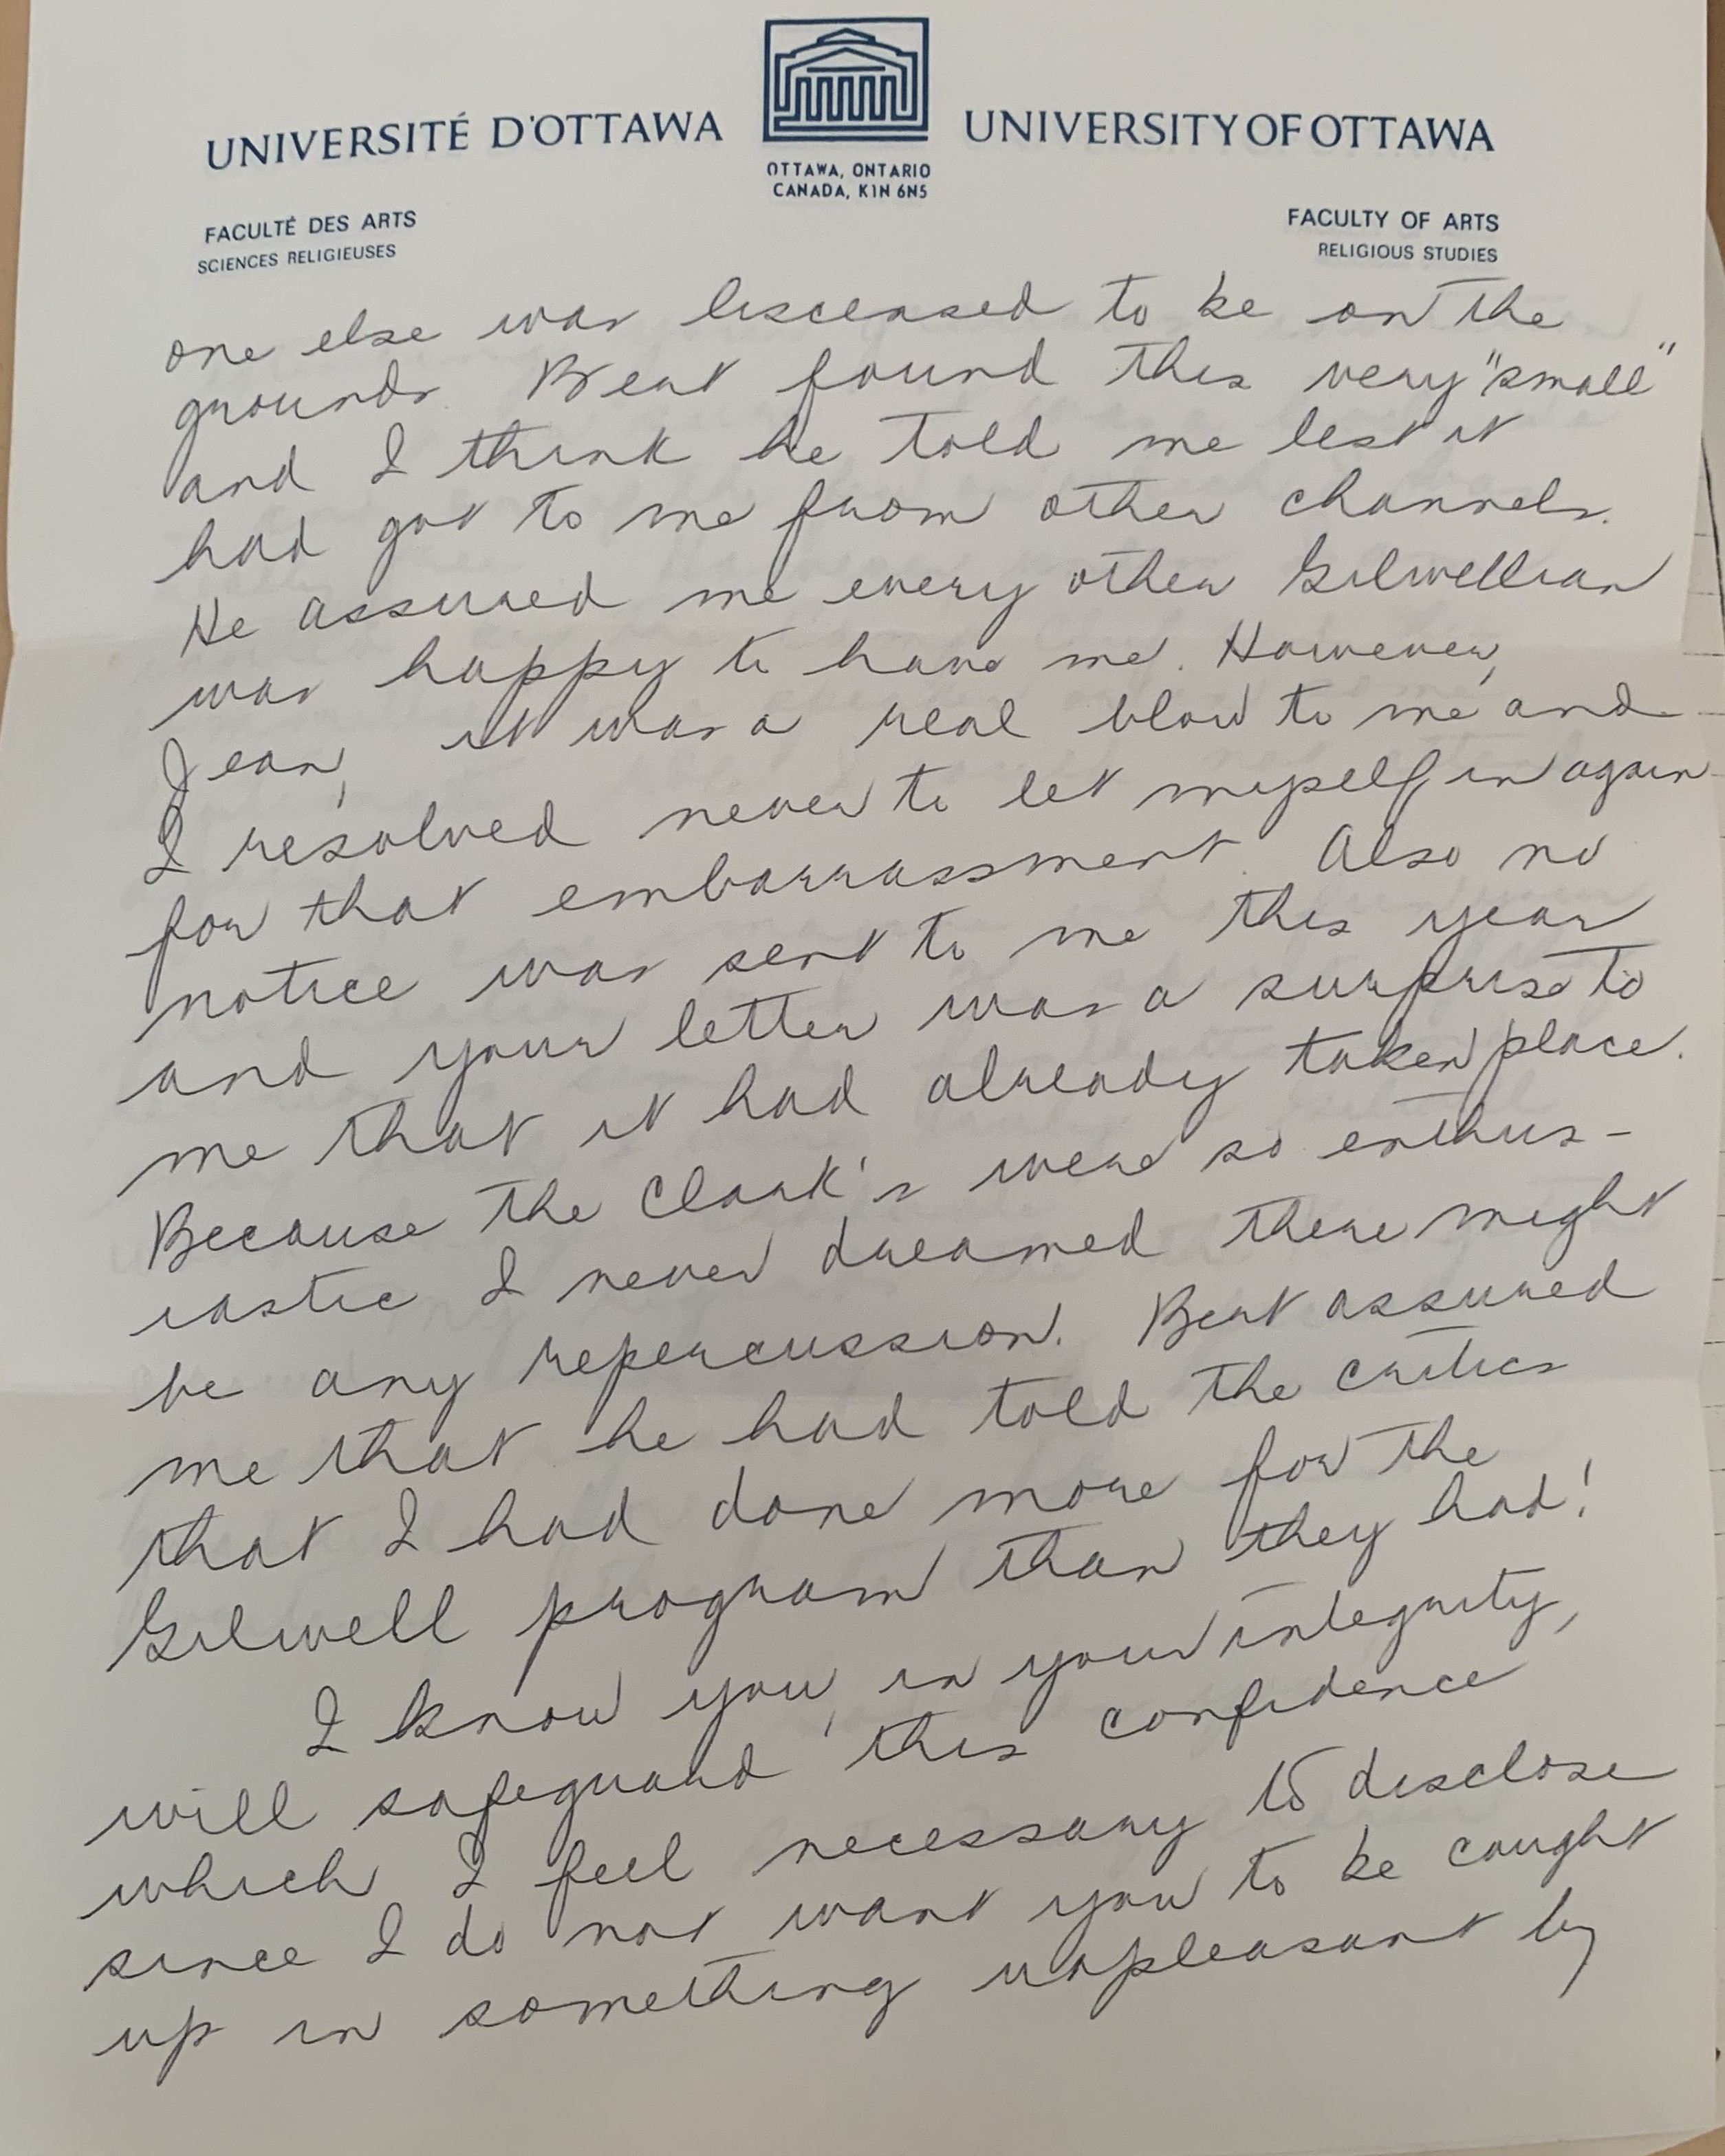 UNIVERSITÉ D'OTTAWA UNIVERSITY OF OTTAWA
OTTAWA, ONTARIO
CANADA, K1N 6N5
FACULTÉ DES ARTS FACULTY OF ARTS
SCIENCES RELIGIEUSES RELIGIOUS STUDIES
one else was liscensed to be on the
grounds. Bert found this very "small"
and I think he told me lest it
had got to me from other channels.
He assured me every other Gilwellian
was happy to have me. However,
Jean, it was a real blow to me and
I resolved never to let myself in again
for that embarrassment. Also no
notice was sent to me this year
and your letter was a surprise to
me that it had already taken place.
Because the Clark's were so enthus-
iastic I never dreamed there might
be any repercussion. Bert assured
me that he had told the critics
that I had done more for the
Gilwell program than they had!
I know you, in your integrity,
will safeguard this confidence
which I feel necessary to disclose
since I do not want you to be caught
up in something unpleasant by